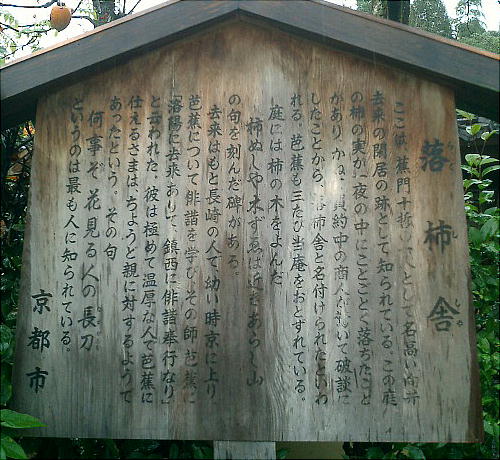 落柿舎
らくししゃ
ここは 蕉門十哲 として名高い向井
去来の閑居の跡として知られている この庭
の柿の実が一夜の中にことごとく落ちたこと
があり かね 契約中の商人 が 驚いて破談に
したことから 落柿舎と名付けられたといわ
れる。芭蕉も三たび当庵をおとずれている。
庭には柿の木をよんだ
柿ぬしや木ずゑは近きあらし山
の句を刻んだ碑がある。
去来はもと長崎の人で、幼い時京に上り
芭蕉について俳諧を学び、その師芭蕉に
「洛陽に去来ありて、鎮西に俳諧奉行なり」
と云われた。彼は極めて温厚な人で芭蕉に
仕えるさまは、ちょうど親に対するようで
あったという。その句
何事ぞ花見る人の長刀
というのは最も人に知られている。
京都市